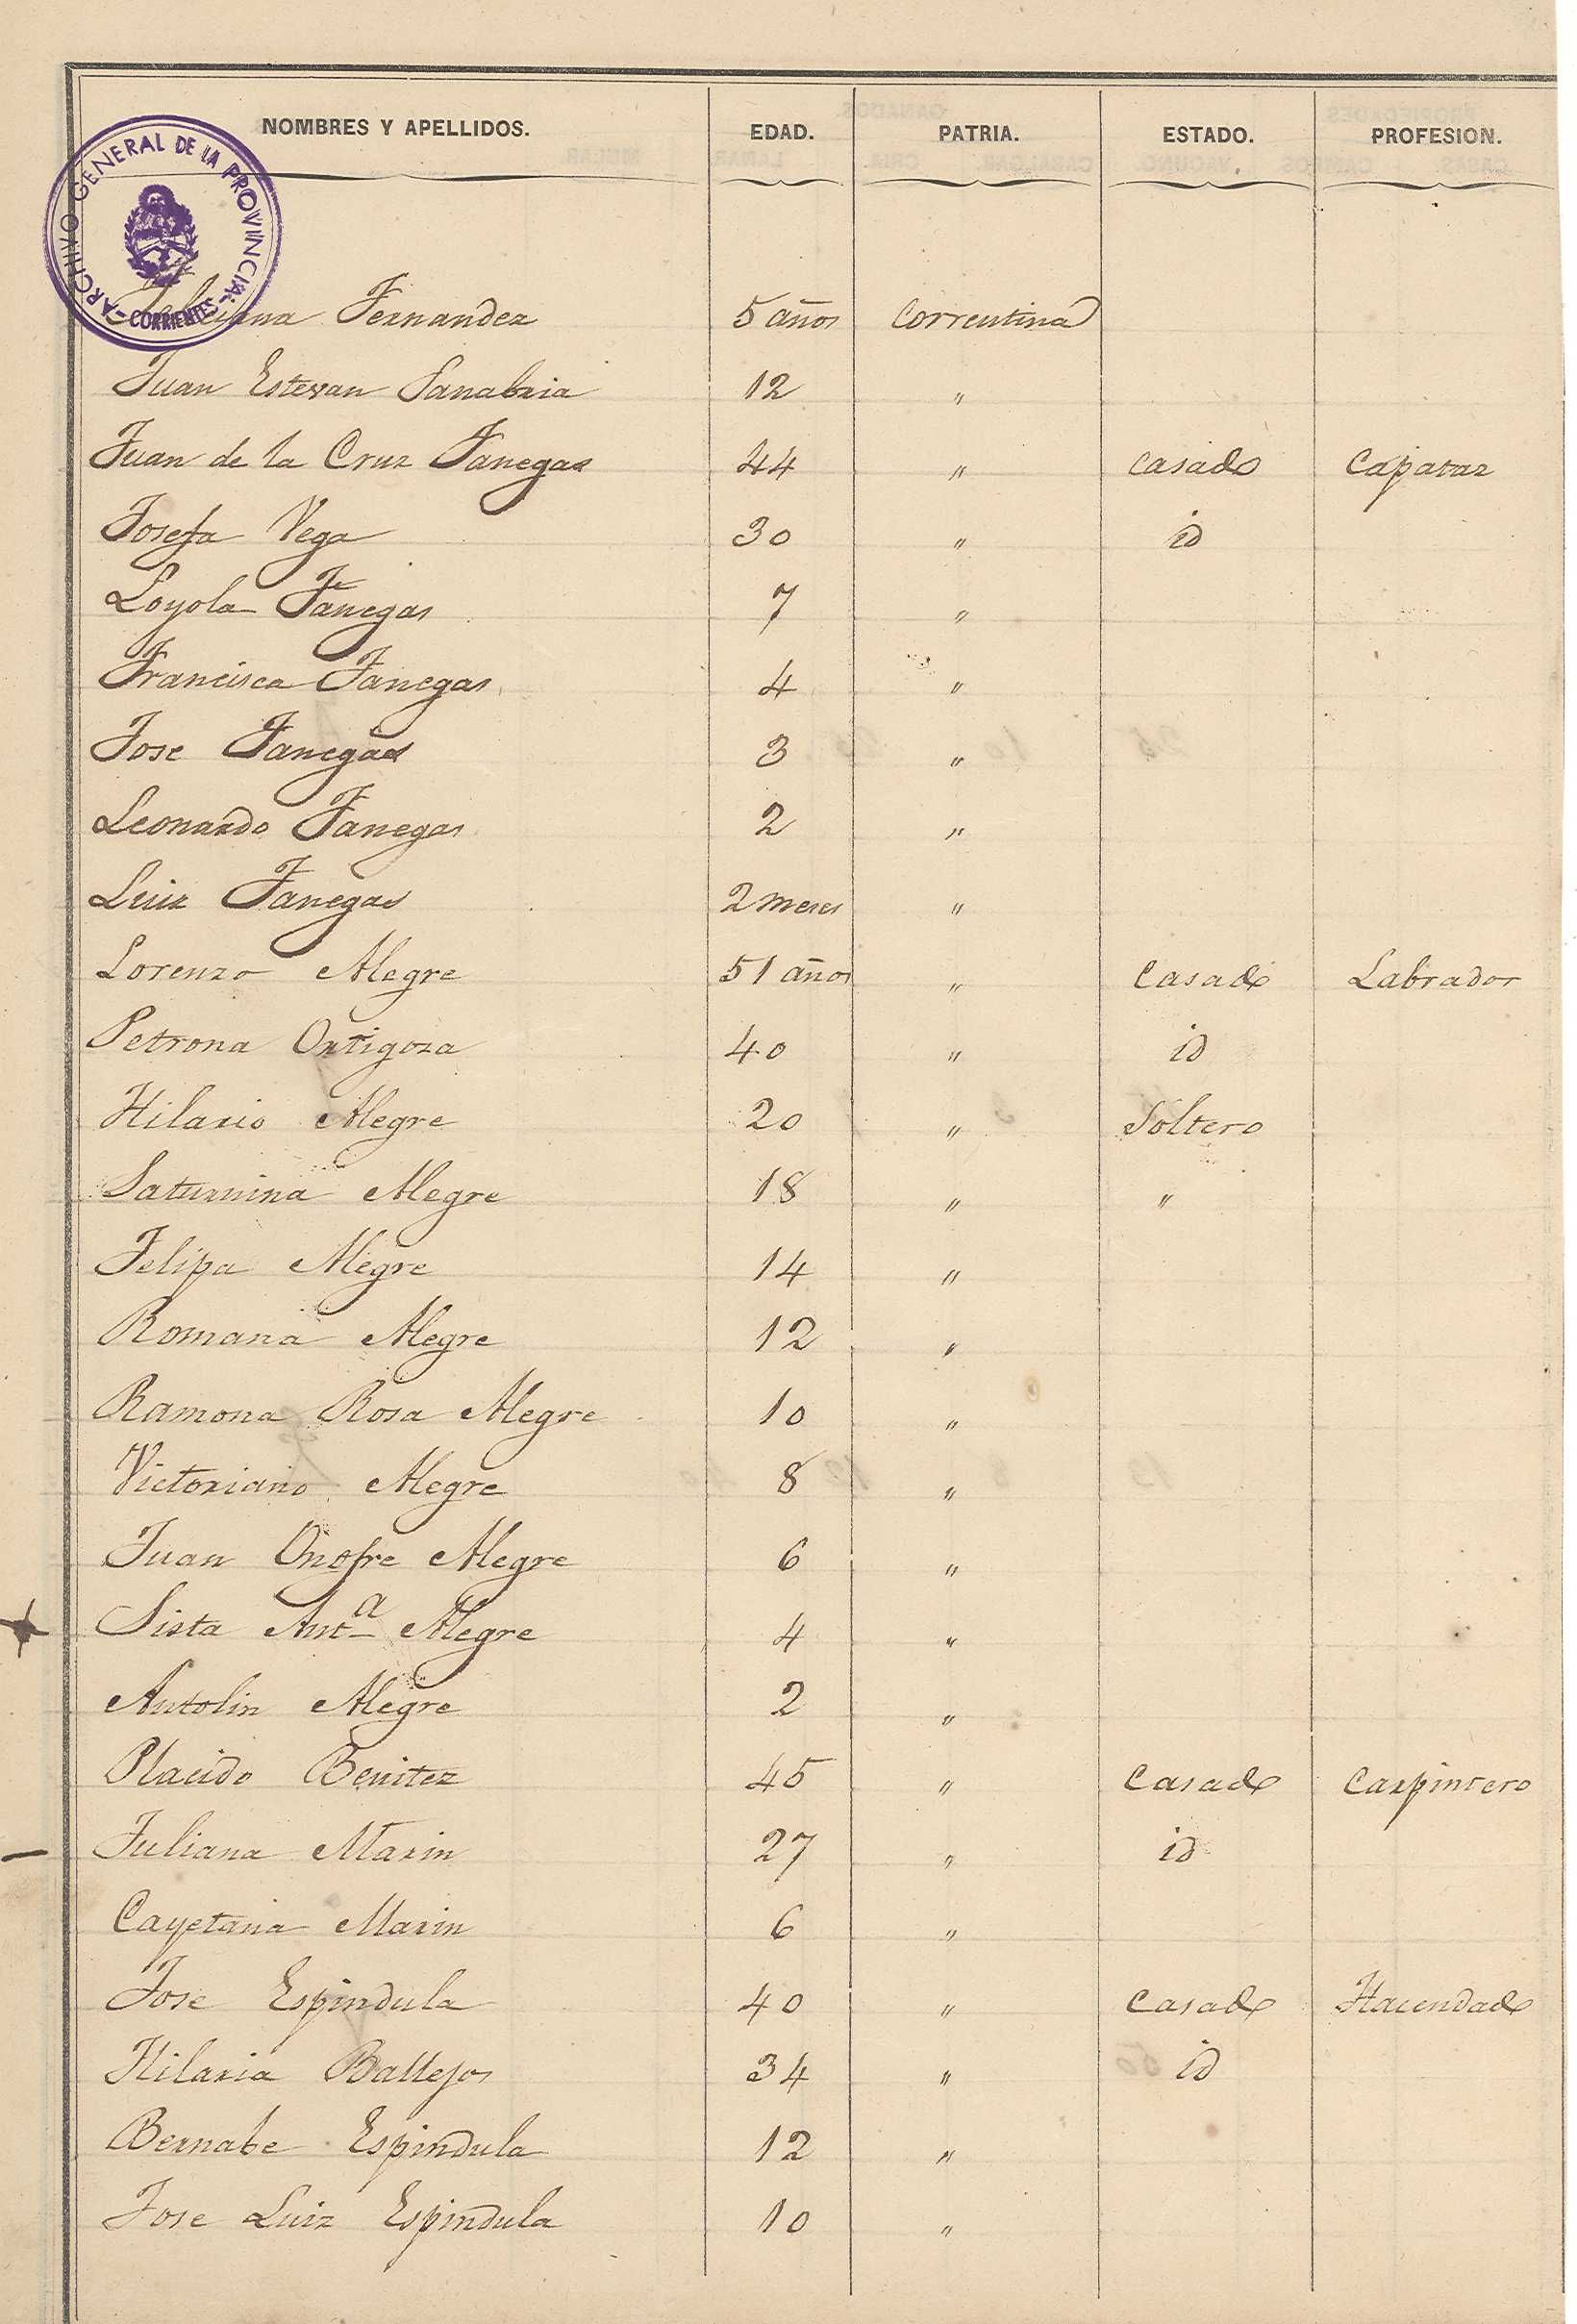 NOMBRES Y APELLIDOS. EDAD. PATRIA. ESTADO. PROFESION.
ARCHIVO GENERAL DE LA PROVINCIA - CORRIENTES -
Fernandez 5 años Correntina
Juan Estevan Sanabria 12 "
Juan de la Cruz Fanegas 44 " Casado Capataz
Josefa Vega 30 " id
Loyola Fanegas 7 "
Francisca Fanegas 4 "
Jose Fanegas 3 "
Leonardo Fanegas 2 "
Luiz Fanegas 2 meses "
Lorenzo Alegre 51 años " Casado Labrador
Petrona Ortigoza 40 " id
Hilario Alegre 20 " Soltero
Saturnina Alegre 18 " "
Felipa Alegre 14 "
Romana Alegre 12 "
Ramona Rosa Alegre 10 "
Victoriano Alegre 8 "
Juan Onofre Alegre 6 "
Sista Antª Alegre 4 "
Antolin Alegre 2 "
Placido Benitez 45 " Casado Carpintero
Juliana Marin 27 " id
Cayetana Marin 6 "
Jose Espindula 40 " Casado Hacendado
Hilaria Ballejos 34 " id
Bernabe Espindula 12 "
Jose Luiz Espindula 10 "